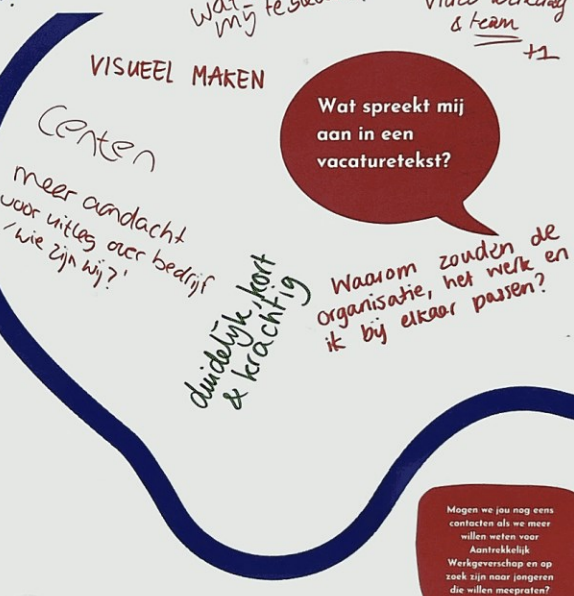 & team
+1
VISUEEL MAKEN
Centen
Wat spreekt mij
aan in een
vacaturetekst?
meer aandacht
voor uitleg over bedrijf
/'wie zijn wij?'
duidelijk, kort
& krachtig
Waarom zouden de
organisatie, het werk en
ik bij elkaar passen?
Mogen we jou nog eens
contacten als we meer
willen weten voor
Aantrekkelijk
Werkgeverschap en op
zoek zijn naar jongeren
die willen meepraten?